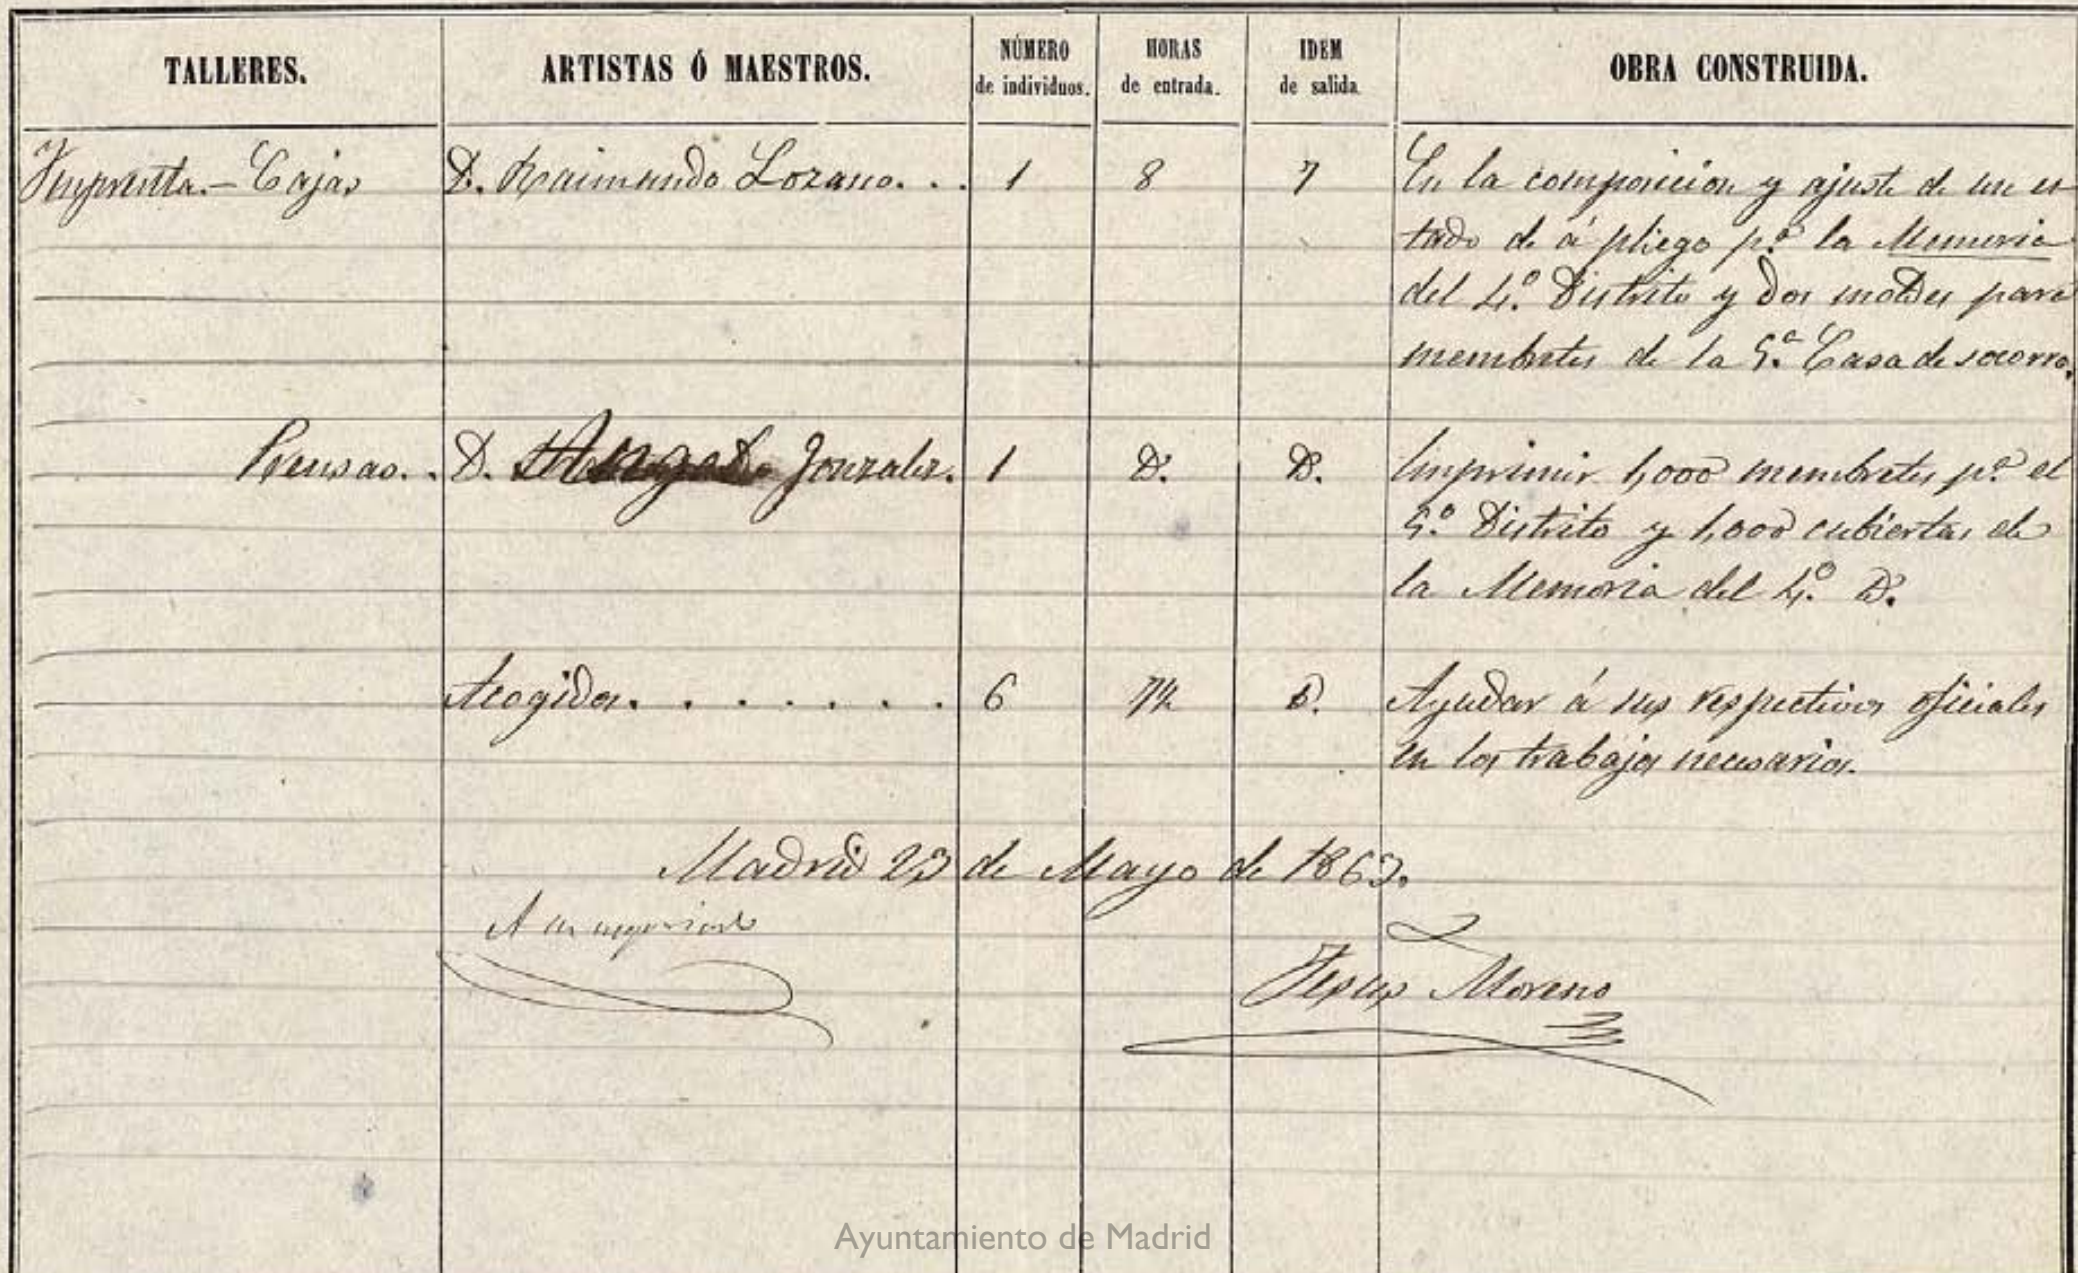 TALLERES. ARTISTAS Ó MAESTROS. NÚMERO de individuos. HORAS de entrada. IDEM de salida. OBRA CONSTRUIDA.
Imprenta.- Cajas D. Raimundo Lozano. . . 1 8 7 En la composicion y ajuste de un es-
tado de á pliego p.ª la Memoria
del 4.º Distrito y dos moldes para
membretes de la 5.ª Casa de socorro.
Prensas. . D. Angel Gonzalez. 1 D. D. Imprimir 1,000 membretes p.ª el
5.º Distrito y 1,000 cubiertas de
la Memoria del 4.º D.
Acogidos. . . . . . . 6 7½ D. Ayudar á sus respectivos oficiales
en los trabajos necesarios.
Madrid 23 de Mayo de 1863.
Jesus Moreno
Ayuntamiento de Madrid